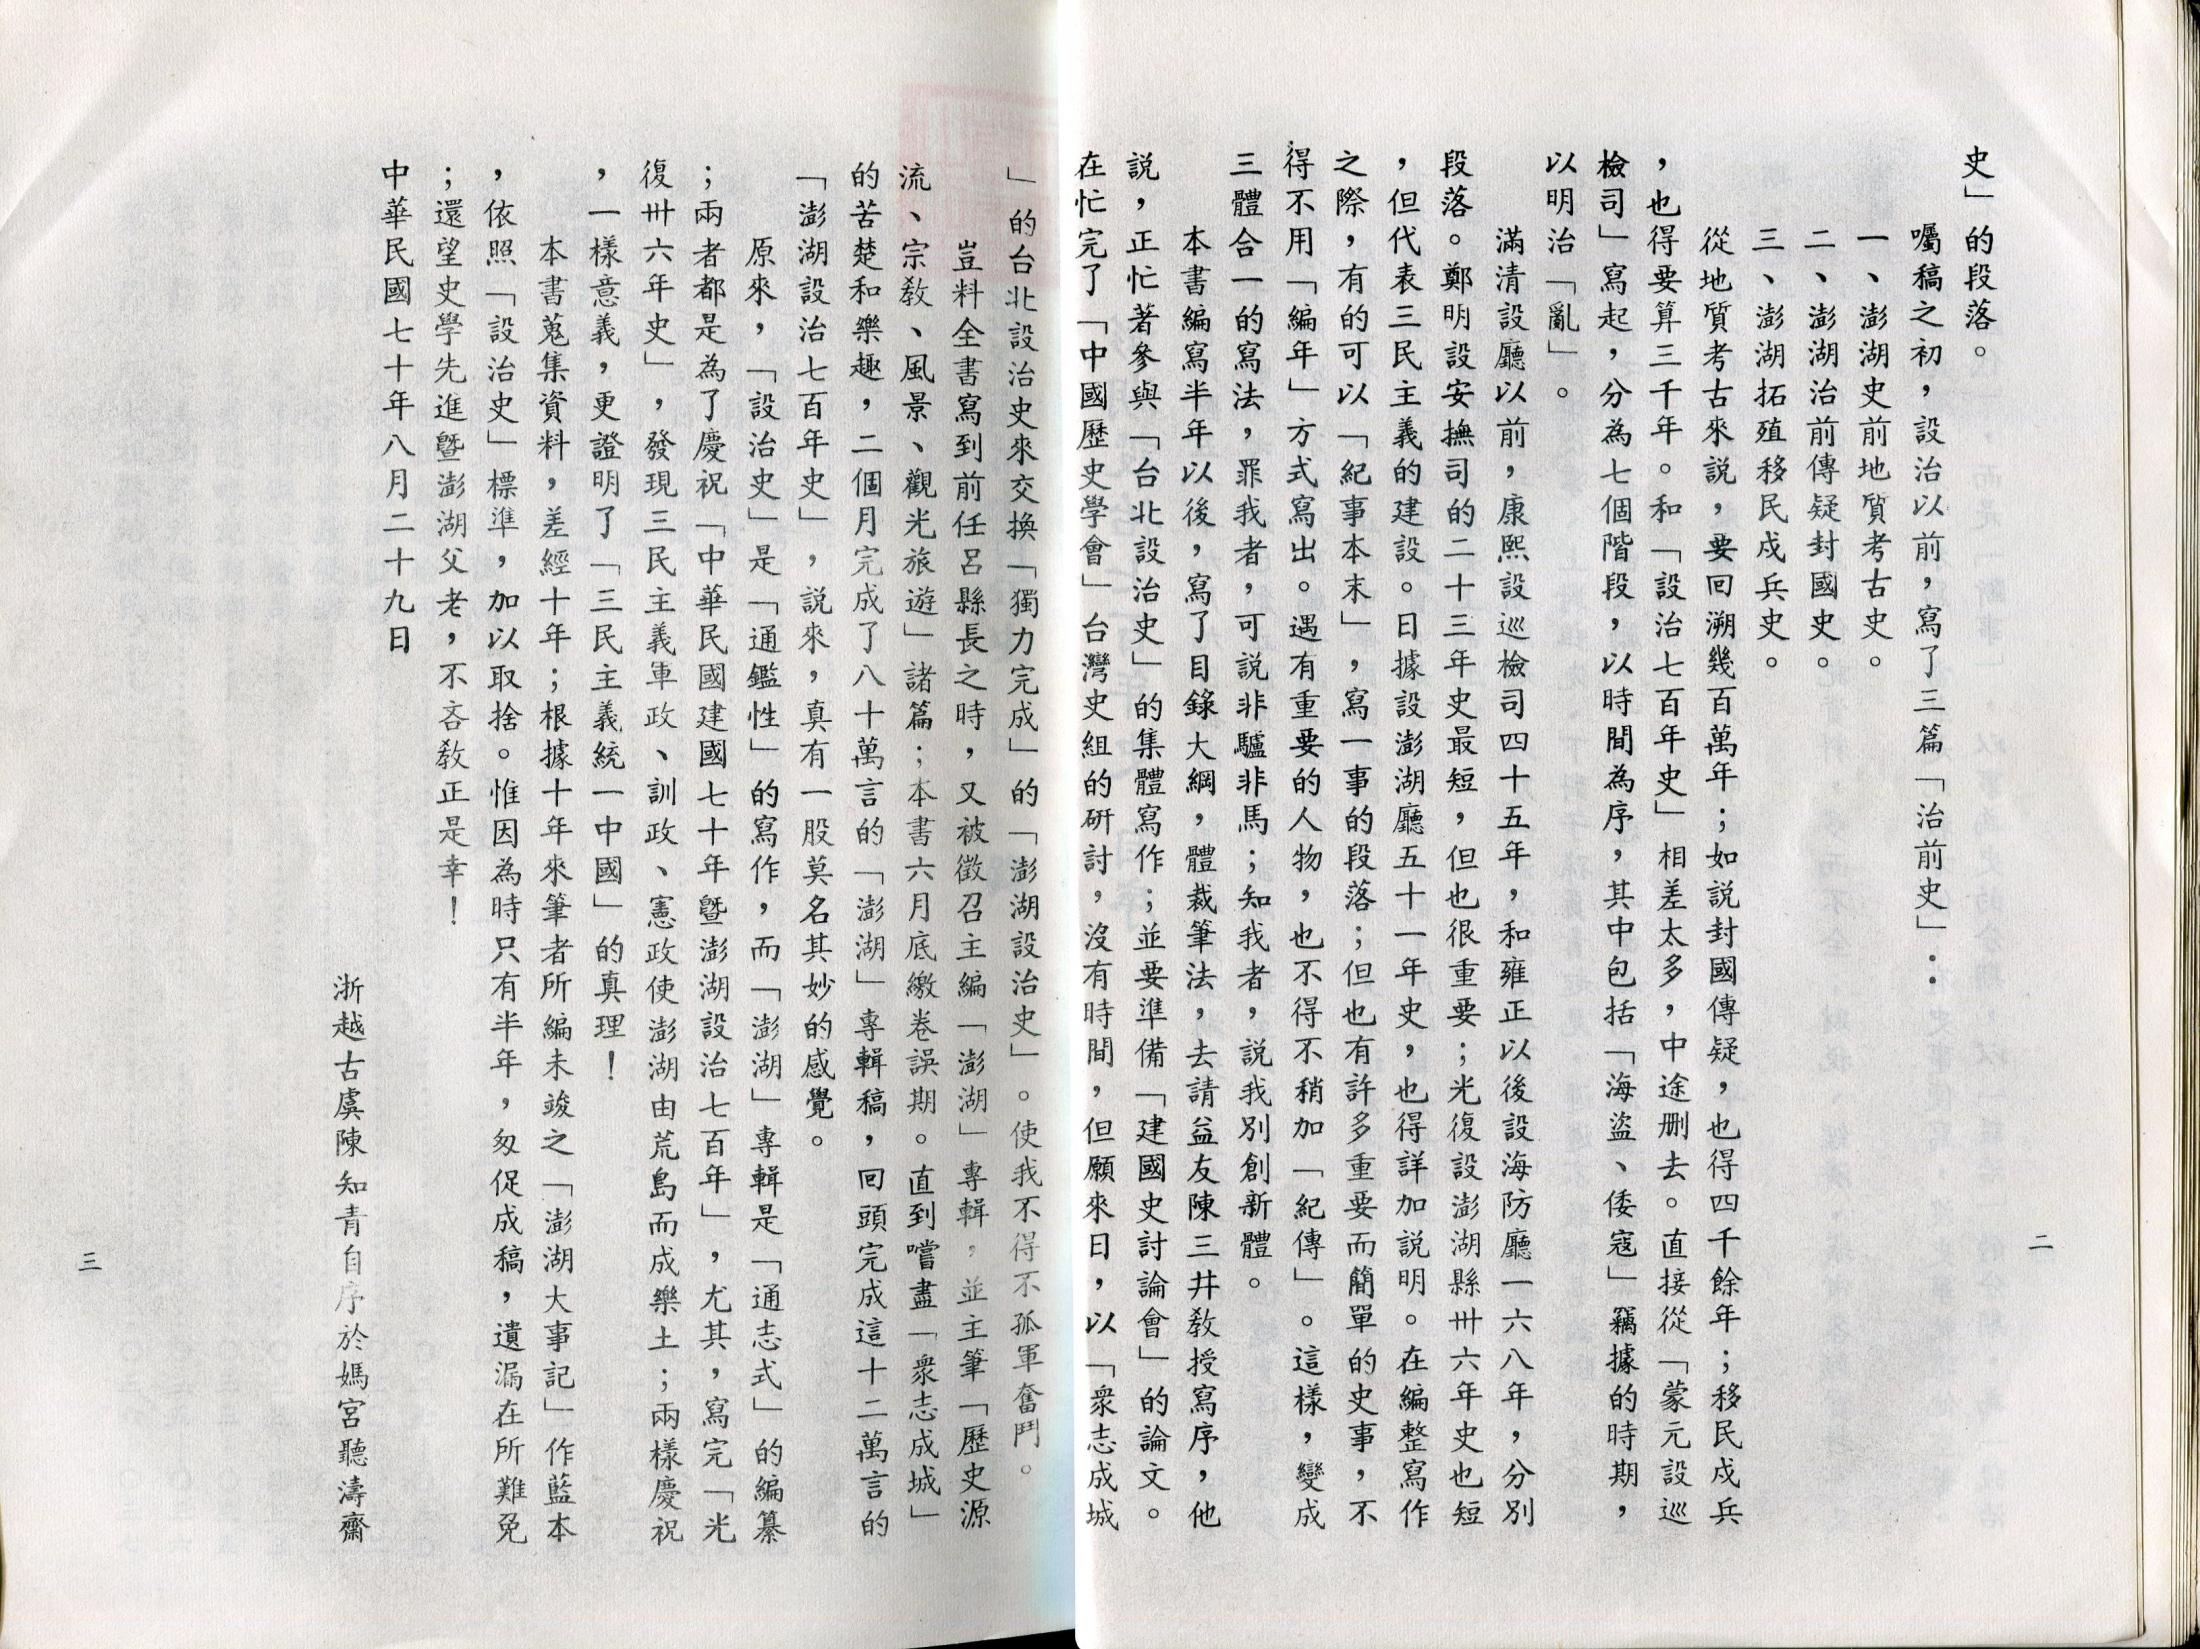 史」的段落。
囑稿之初，設治以前，寫了三篇「治前史」：
一、澎湖史前地質考古史。
二、澎湖治前傳疑封國史。
三、澎湖拓殖移民戍兵史。
從地質考古來說，要回溯幾百萬年；如說封國傳疑，也得四千餘年；移民戍兵
，也得要算三千年。和「設治七百年史」相差太多，中途刪去。直接從「蒙元設巡
檢司」寫起，分為七個階段，以時間為序，其中包括「海盜、倭寇」竊據的時期，
以明治「亂」。
滿清設廳以前，康熙設巡檢司四十五年，和雍正以後設海防廳一六八年，分別
段落。鄭明設安撫司的二十三年史最短，但也很重要；光復設澎湖縣卅六年史也短
，但代表三民主義的建設。日據設澎湖廳五十一年史，也得詳加說明。在編整寫作
之際，有的可以「紀事本末」，寫一事的段落；但也有許多重要而簡單的史事，不
得不用「編年」方式寫出。遇有重要的人物，也不得不稍加「紀傳」。這樣，變成
三體合一的寫法，罪我者，可說非驢非馬；知我者，說我別創新體。
本書編寫半年以後，寫了目錄大綱，體裁筆法，去請益友陳三井教授寫序，他
說，正忙著參與「台北設治史」的集體寫作；並要準備「建國史討論會」的論文。
在忙完了「中國歷史學會」台灣史組的研討，沒有時間，但願來日，以「衆志成城
」的台北設治史來交換「獨力完成」的「澎湖設治史」。使我不得不孤軍奮鬥。
豈料全書寫到前任呂縣長之時，又被徵召主編「澎湖」專輯，並主筆「歷史源
流、宗教、風景、觀光旅遊」諸篇；本書六月底繳卷誤期。直到嚐盡「衆志成城」
的苦楚和樂趣，二個月完成了八十萬言的「澎湖」專輯稿，回頭完成這十二萬言的
「澎湖設治七百年史」，說來，真有一股莫名其妙的感覺。
原來，「設治史」是「通鑑性」的寫作，而「澎湖」專輯是「通志式」的編纂
；兩者都是為了慶祝「中華民國建國七十年曁澎湖設治七百年」，尤其，寫完「光
復卅六年史」，發現三民主義軍政、訓政、憲政使澎湖由荒島而成樂土；兩樣慶祝
，一樣意義，更證明了「三民主義統一中國」的真理！
本書蒐集資料，差經十年；根據十年來筆者所編未竣之「澎湖大事記」作藍本
，依照「設治史」標準，加以取捨。惟因為時只有半年，匆促成稿，遺漏在所難免
；還望史學先進曁澎湖父老，不吝教正是幸！
中華民國七十年八月二十九日
浙越古虞陳知青自序於媽宮聽濤齋
二
三